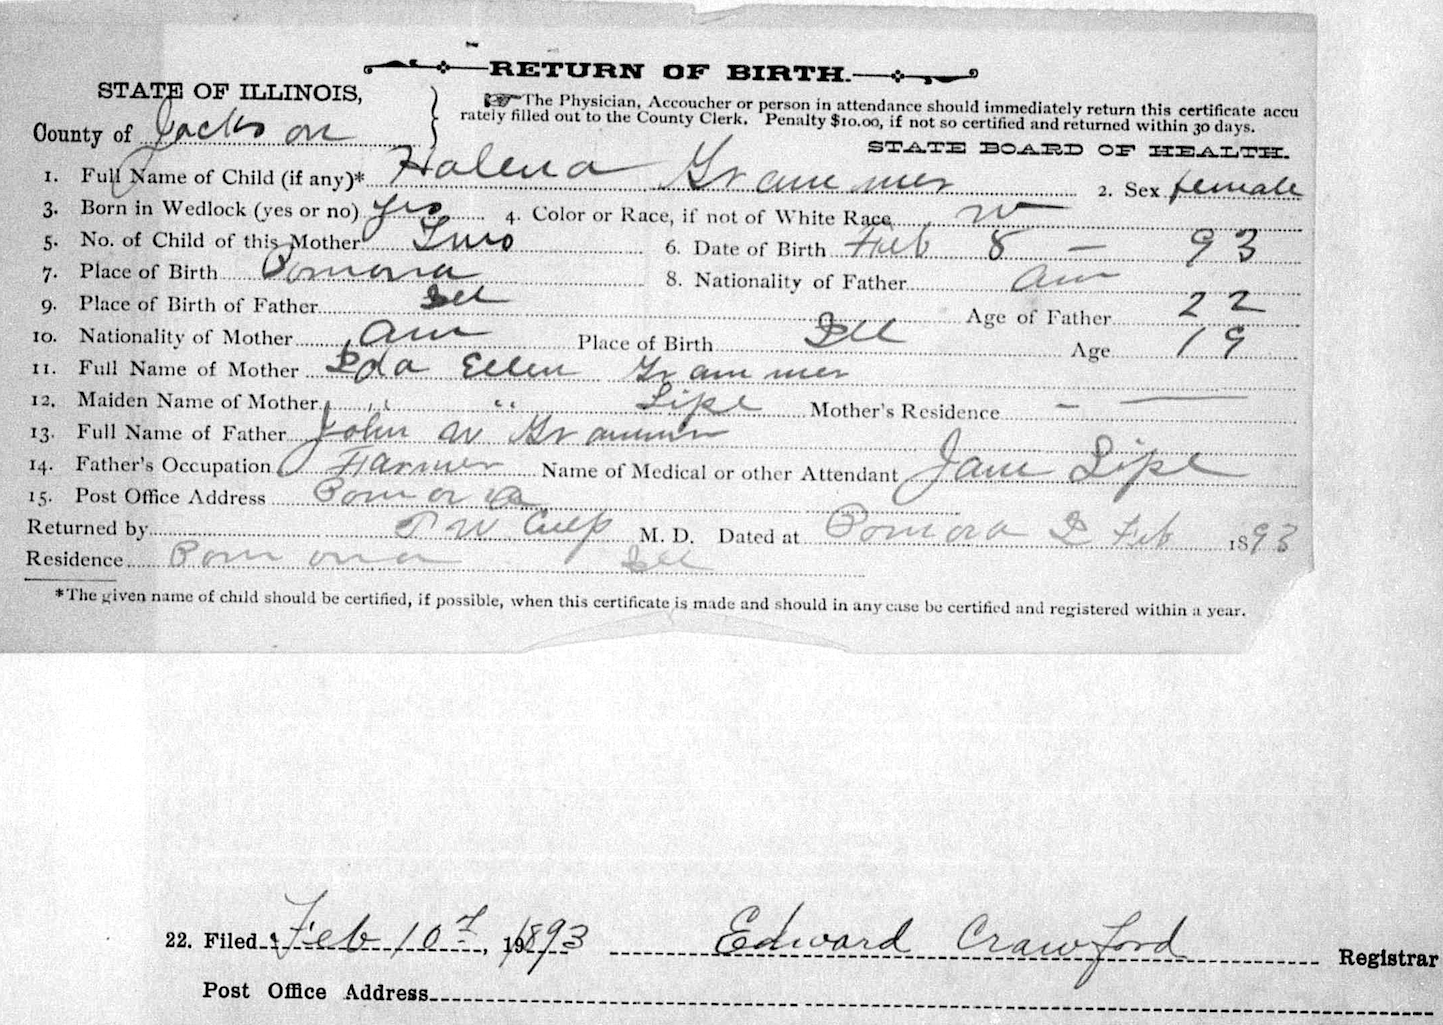 RETURN OF BIRTH.
STATE OF ILLINOIS,
County of Jackson
The Physician, Accoucher or person in attendance should immediately return this certificate accu
rately filled out to the County Clerk. Penalty $10.00, if not so certified and returned within 30 days.
STATE BOARD OF HEALTH.
1. Full Name of Child (if any)* Halena Grammer 2. Sex female
3. Born in Wedlock (yes or no) yes 4. Color or Race, if not of White Race W
5. No. of Child of this Mother Two 6. Date of Birth Feb 8 – 93
7. Place of Birth Pomona 8. Nationality of Father Am
9. Place of Birth of Father Ill Age of Father 22
10. Nationality of Mother Am Place of Birth Ill Age 19
11. Full Name of Mother Ida Ellen Grammer
12. Maiden Name of Mother " " Lipe Mother's Residence –
13. Full Name of Father John W Grammer
14. Father's Occupation Farmer Name of Medical or other Attendant Jane Lipe
15. Post Office Address Pomona
Returned by W Culp M. D. Dated at Pomona Feb 1893
Residence Pomona Ill
*The given name of child should be certified, if possible, when this certificate is made and should in any case be certified and registered within a year.
22. Filed Feb 10, 1893 Edward Crawford Registrar
Post Office Address